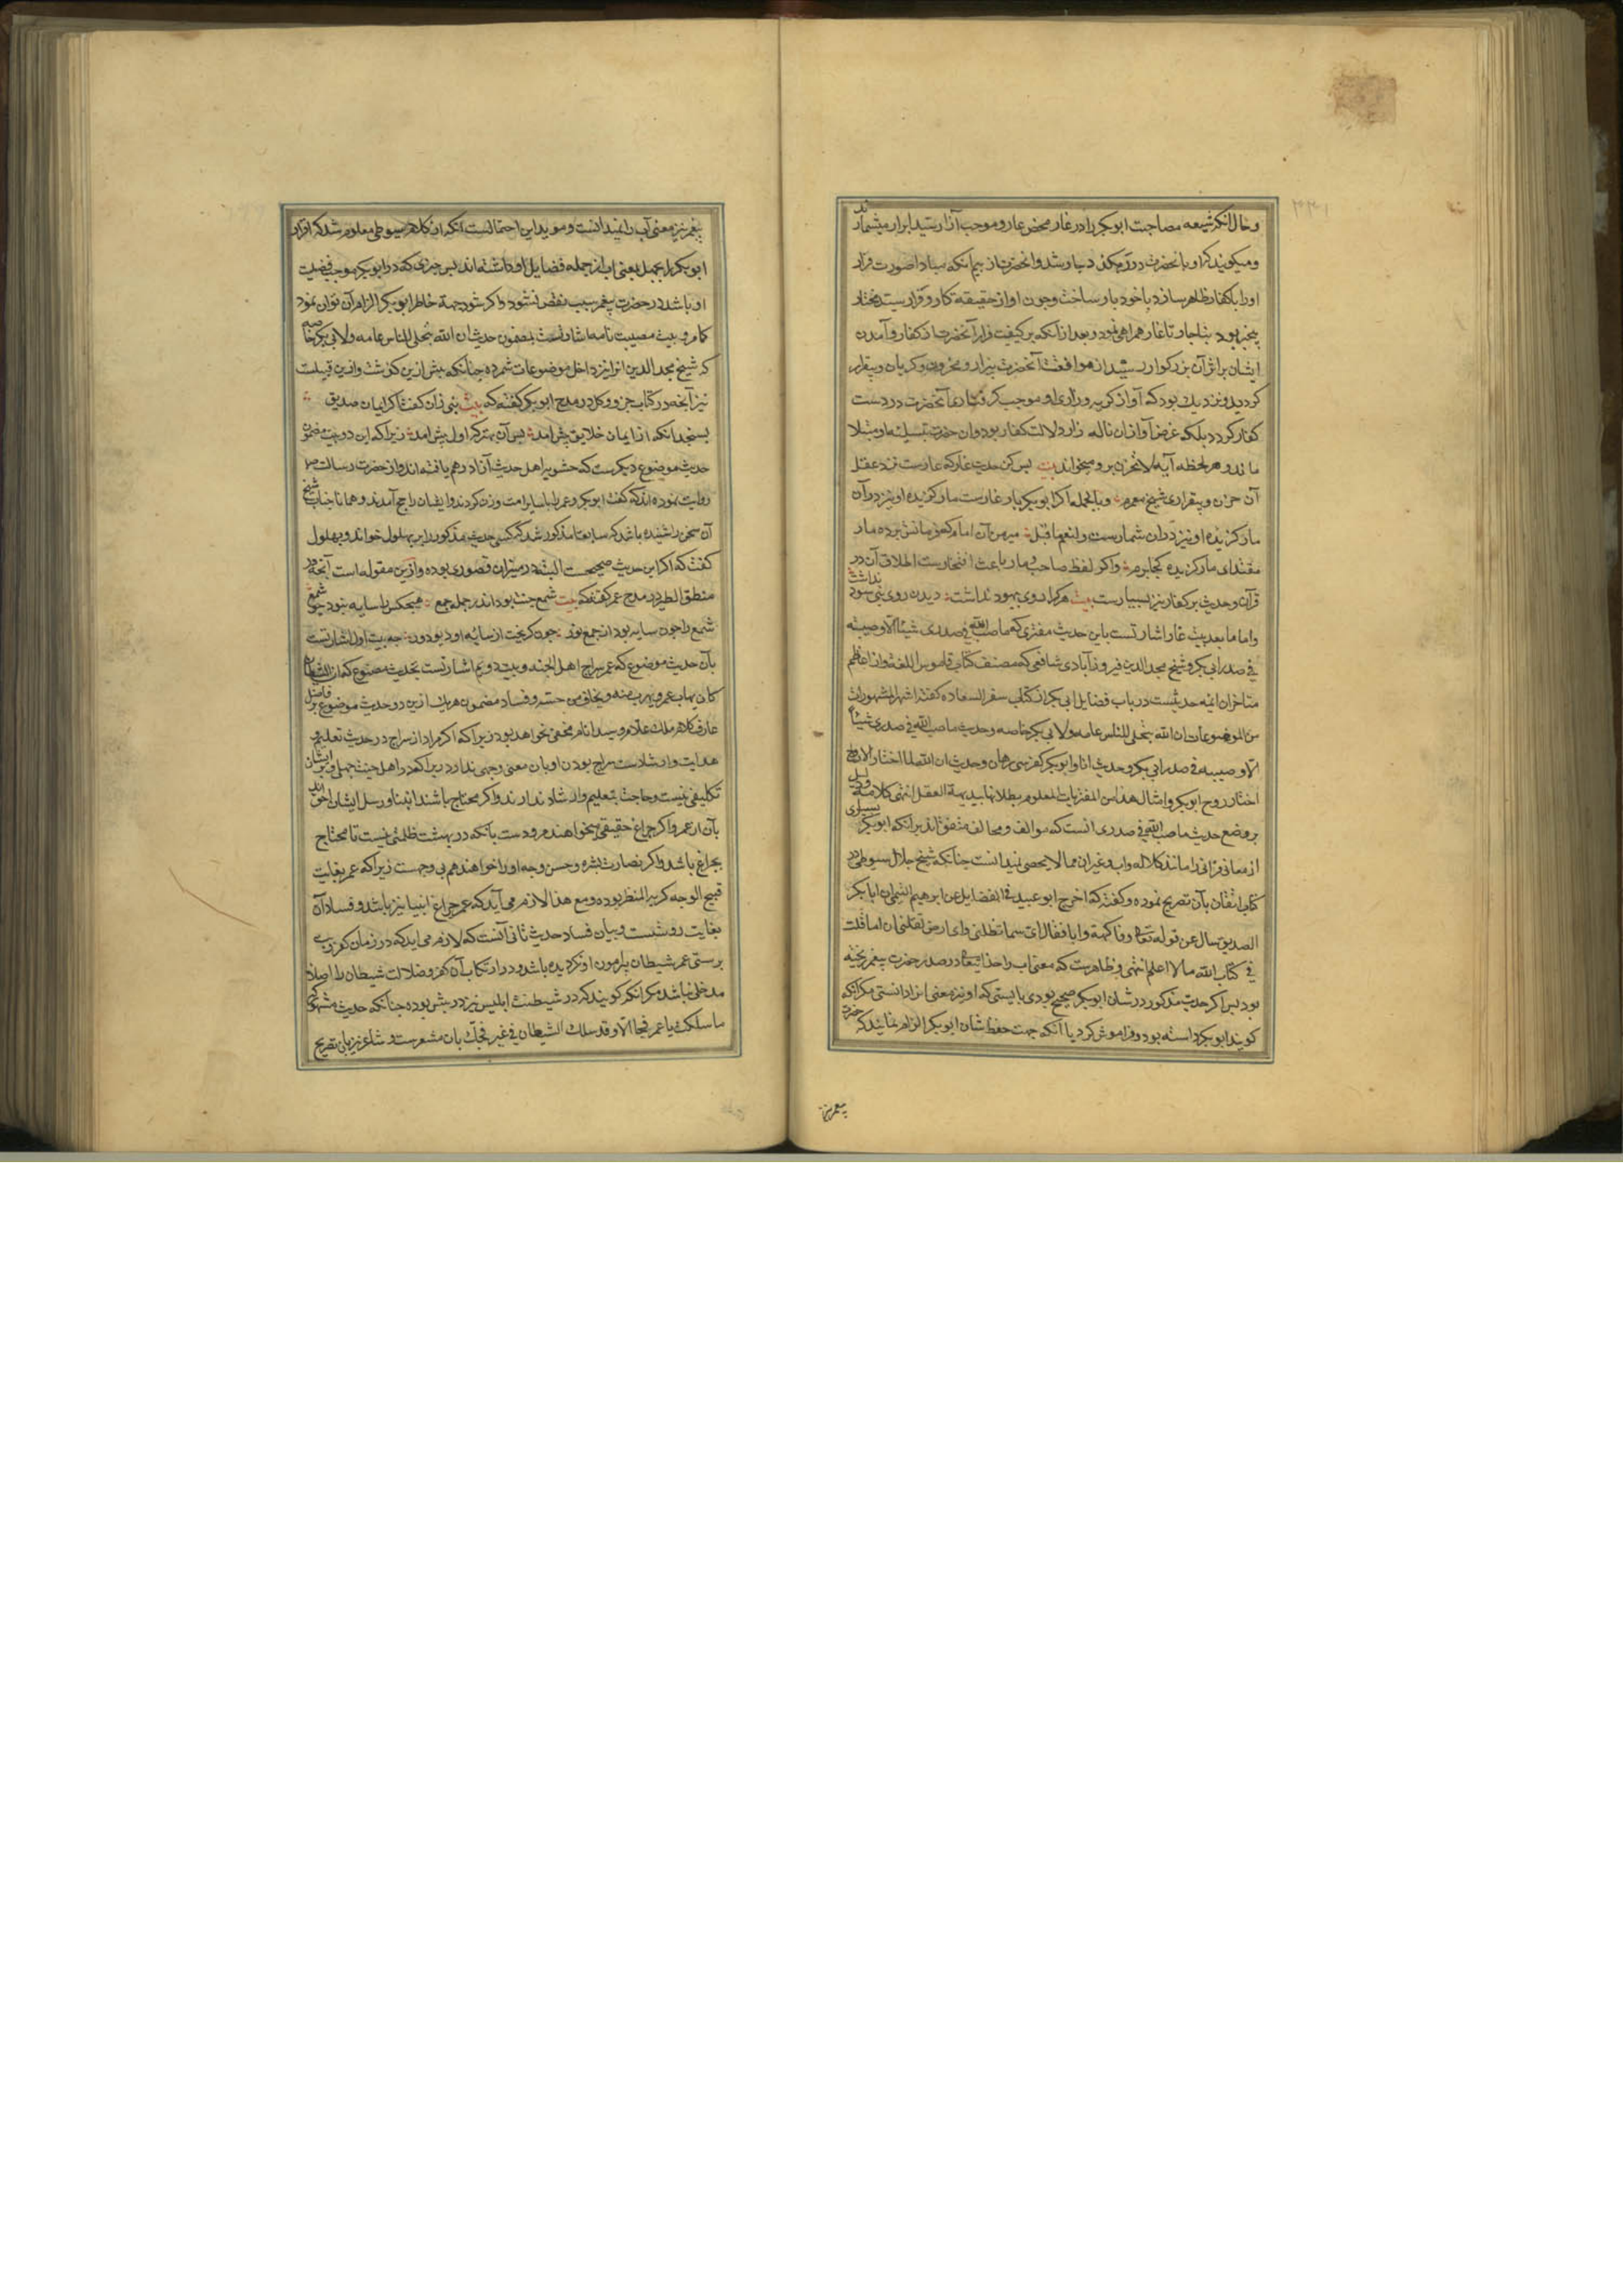 وحال آنکه شیعه مصاحبت ابوبکر را در غار محض عار و موجب آزار سید ابرار میشمارند
و میکویند که او با نحضرت در ره مکه دچار شد و انحضرت از بیم انکه مبادا صورت فرار
اورا بکفار ظاهر سازد با خود یار ساخت وچون او از حقیقه کار و قرار سید مختار
بیخبر بود بناچار تا غار همراهی نمود و بعد از آنکه بر کیفیت فرار آنحضرت از کفار و آمدن
ایشان بر اثر آن بزرکوار رسید از موافقت آنحضرت بیزار و محزون و کریان و بیقرار
کردید و نزدیک بود که آواز کریه و زاری او موجب کرفتاری آنحضرت در دست
کفار کردد بلکه غرض آواز ان ناله زار دلالت کفار بود وان حضرت تسلیه او مبتلا
ماند و هر لحظه آیه لا تحزن برو میخواند بیت بس کن حدیث غار که عارست نزد عقل
آن حزن و بیقراری شیخ معمرم وبالجمله اکر ابوبکر یار غارست مار کزیده او نیز در آن
مار کزیده او نیز در ان شمارست ولنعم ما قیل میر من آن امام که فرمانش برده مار
مقتدای مار کزیده کجا برم واکر لفظ صاحب و مار باعث افتخارست اطلاق آن در
قرآن وحدیث بر کفار نیز بسیارست بیت هر کرا روی بهبود نداشت دیدن روی نبی سود نداشت
واما ما بعد بیت غار اشارتست باین حدیث مفتری که ما صب الله فی صدری شیئا الا وصببته
فی صدر ابی بکر و شیخ مجد الدین فیروزآبادی شافعی که مصنف کتاب قاموس اللغة واز اعاظم
متاخران ائمه حدیثست در باب فضایل ابی بکر از کتاب سفر السعاده کفته اشهر المشهورات
من الموضوعات ان الله یتجلی للناس عامه ولابی بکر خاصه وحدیث ما صب الله فی صدری شیئا
الا وصببته فی صدر ابی بکر وحدیث انا وابو بکر کفرسی رهان وحدیث ان الله لما اختار الارواح
اختار روح ابو بکر وامثال هذا من المفتریات المعلوم بطلانها ببدیهة العقل انتهی کلامه ودلیل
بر وضع حدیث ما صب الله فی صدری انست که موالف و مخالف متفق اند برانکه ابوبکر بسیاری
از معانی قرآنی را مانند کلاله واب وغیران مما لا یحصی نمیدانست چنانکه شیخ جلال سیوطی در
کتاب اتقان بآن تصریح نموده و کفته که اخرج ابو عبید فی الفضایل عن ابرهیم التیمی ان ابابکر
الصدیق سال عن قوله تعالی وفاکهة وابا فقال ای سماء تظلنی وای ارض تقلنی ان اما قلت
فی کتاب الله ما لا اعلم انتهی و ظاهرست که معنی اب را خدا یتعالی در صدر حضرت پیغمبر ریخته
بود پس اکر حدیث مذکور در شان ابوبکر صحیح بودی بایستی که او نیز معنی انرا دانستی مکر انکه
کویند ابوبکر دانسته بود و فراموش کرد یا آنکه جهت حفظ شان ابوبکر الزام نمایند که حضرت
پیغمبر نیز
پیغمبر نیز معنی آب را نمیدانست و موید این احتمالست آنکه از کلام سیوطی معلوم شد که اقرار
ابوبکر را بجهل بمعنی اب از جمله فضایل او داشته اند پس چیزی که در ابوبکر موجب فضیلت
او باشد در حضرت پیغمبر سبب نقض نشود واکر شود جهة خاطر ابوبکر الزام آن توان نمود
کام و بیت مصیبت نامه اشارتست بمضمون حدیث ان الله یتجلی للناس عامه ولابی بکر خاصه
که شیخ مجد الدین انرا نیز داخل موضوعات شمرده چنانکه پیش ازین کذشت وازین قبیلست
نیز آنچه در کتاب جزو وکل در مدح ابوبکر کفته که بیت نبی زان کفت کر ایمان صدیق
بسنجد انکه از ایمان خلایق بیش امد پس آن بهتر که اول پیش امد زیرا که این دو بیت مضمون
حدیث موضوع دیکرست که حشویه اهل حدیث آنرا درهم بافته اند واز حضرت رسالت ص
روایت نموده اند که کفت ابوبکر وعمر را با سایر امت وزن کردند وایشان راجح آمدند وهمانا جناب شیخ
آن سخن را شنیده باشد که سابقا مذکور شد که کسی حدیث مذکور را بر بهلول خواند و بهلول
کفت که اکر این حدیث صحیحست البته در میزان قصوری بوده وازین مقوله است آنچه در
منطق الطیر در مدح عمر کفته که بیت شمع جنت بود اندر جمله جمع هیچکس را سایه نبود چو شمع
شمع را چون سایه بود از جمع نور چون کریخت از سایه او دیو دور چه بیت اول اشارتست
بآن حدیث موضوع که عمر سراج اهل الجنه و بیت دویم اشارتست بحدیث مصنوع که ان الشیطان
کان یهاب عمر ویهرب منه ویخاف من حسه وفساد مضمون هر یک ازین دو حدیث موضوع بر فاضل
عارف کلام ملک علام وسید انام مخفی نخواهد بود زیرا که اکر مراد از سراج در حدیث تعلیم و
هدایت وارشادست سراج بودن او بان معنی وجهی ندارد زیرا که در اهل جنت جهلی و بر ایشان
تکلیفی نیست وحاجت بتعلیم وارشاد ندارند واکر محتاج باشند انبیا ورسل ایشان احق اند
بآن از عمر واکر چراغ حقیقی میخواهند مردودست بآنکه در بهشت ظلمتی نیست تا محتاج
بچراغ باشد واکر نضارت بشره وحسن وجه اورا خواهند هم بی وجهست زیرا که عمر بغایت
قبیح الوجه کریه المنظر بوده ومع هذا لازم می آید که عمر چراغ انبیا نیز باشد وفساد آن
بغایت روشنست وبیان فساد حدیث ثانی آنست که لازم می اید که در زمان کفر وبت
پرستی عمر شیطان پیرامون او نکردیده باشد ودر ارتکاب آن کفر وضلالت شیطان را اصلا
مدخلی نباشد مکر انکه کویند که در شیطنت ابلیس نیز در پیش بوده چنانکه حدیث مشهور که
ما سلکت یا عمر فجا الا وقد سلک الشیطان فی غیر فجک بان مشعرست وشاعر نیز بان تصریح